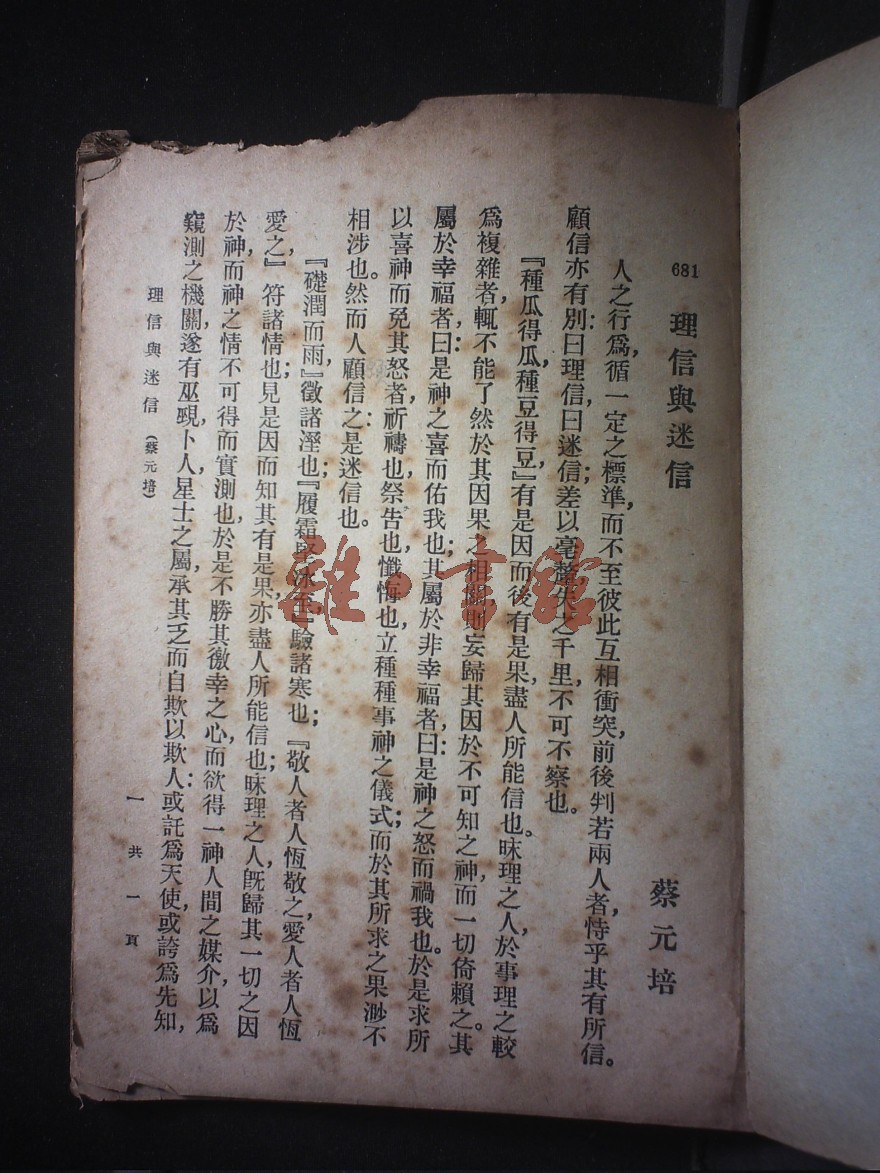 681
理信與迷信
蔡元培
人之行爲，循一定之標準，而不至彼此互相衝突，前後判若兩人者，恃乎其有所信。
顧信亦有別：曰理信，曰迷信；差以毫釐，失之千里，不可不察也。
『種瓜得瓜，種豆得豆，』有是因而後有是果，盡人所能信也。昧理之人，於事理之較
爲複雜者，輒不能了然於其因果之相關，則妄歸其因於不可知之神，而一切倚賴之。其
屬於幸福者，曰：是神之喜而佑我也；其屬於非幸福者，曰：是神之怒而禍我也。於是求所
以喜神而免其怒者，祈禱也，祭告也，懺悔也，立種種事神之儀式；而於其所求之果，渺不
相涉也。然而人顧信之：是迷信也。
『礎潤而雨，』徵諸溼也；『履霜堅冰至，』驗諸寒也；『敬人者人恆敬之，愛人者人恆
愛之，』符諸情也；見是因而知其有是果，亦盡人所能信也；昧理之人，旣歸其一切之因
於神，而神之情不可得而實測也，於是不勝其徼幸之心，而欲得一神人間之媒介，以爲
窺測之機關，遂有巫覡，卜人，星士之屬，承其乏而自欺以欺人：或託爲天使，或誇爲先知，
理信與迷信（蔡元培）
一
共一頁
雜·書館